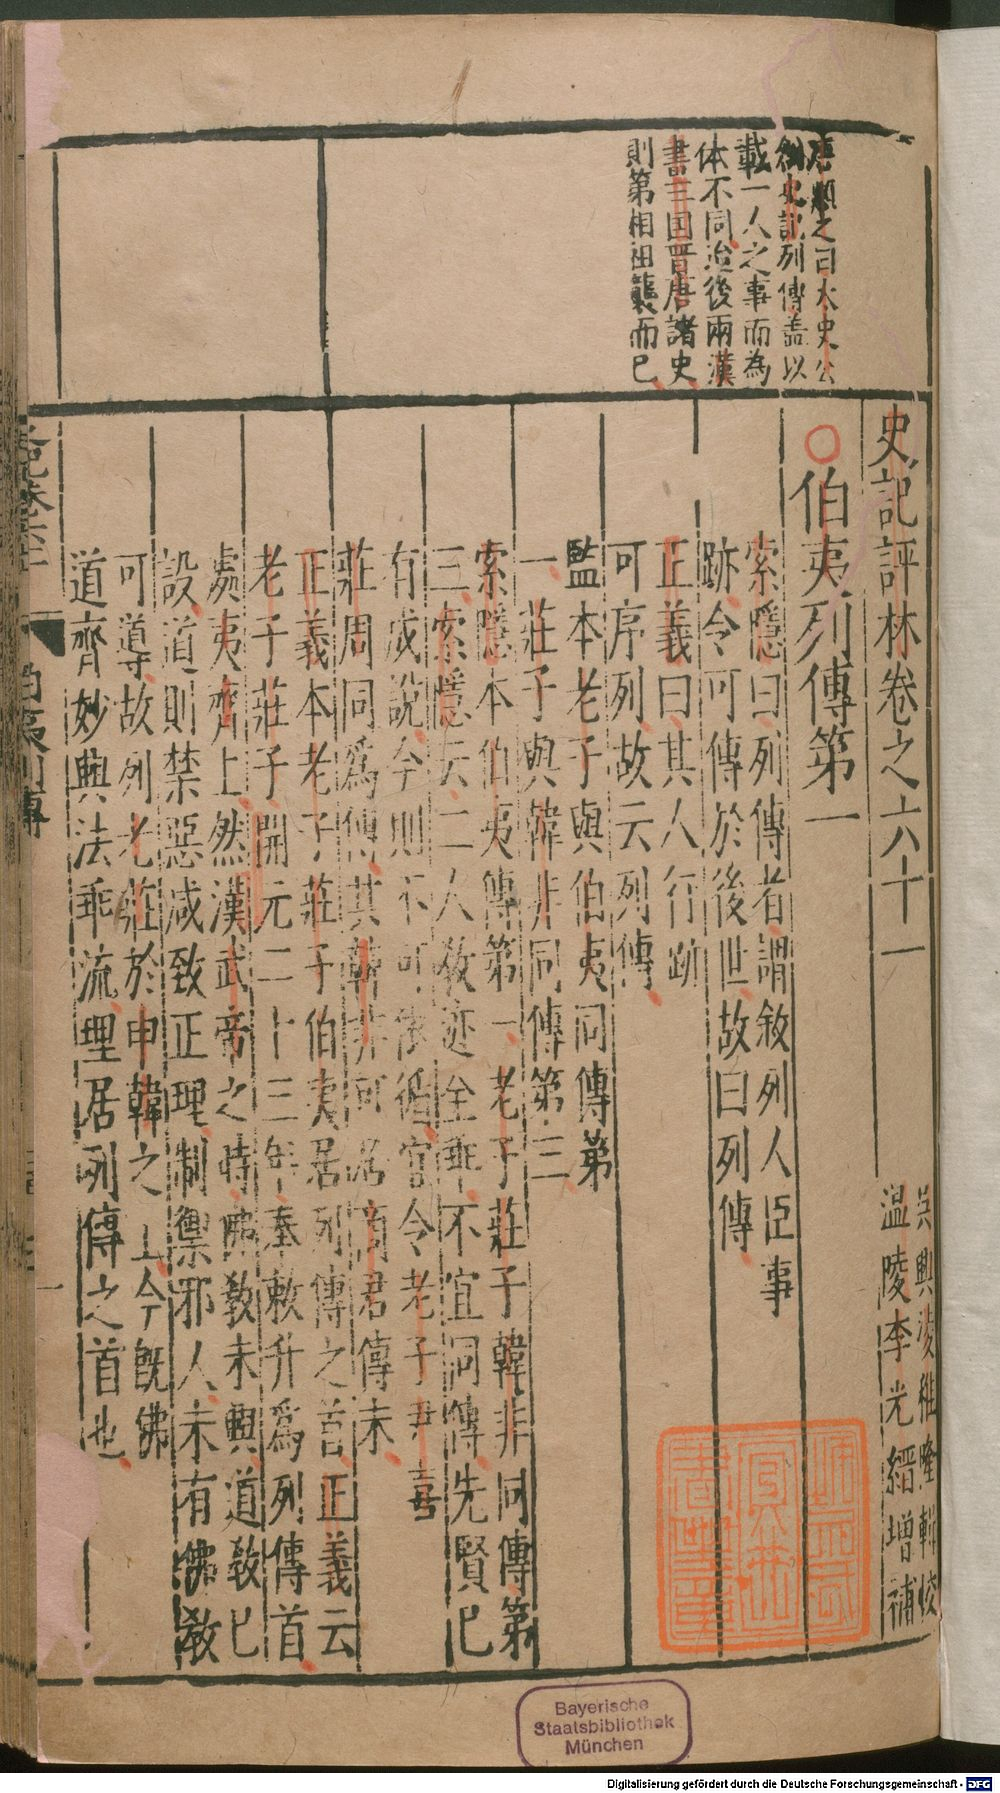 史記評林卷之六十一
吳興凌稚隆輯校
溫陵李光縉增補
伯夷列傳第一
唐順之曰太史公
創史記列傳蓋以
載一人之事而為
体不同迨後兩漢
書三国晋唐諸史
則第相祖襲而已
索隱曰列傳者謂敘列人臣事
跡令可傳於後世故曰列傳
正義曰其人行跡
可序列故云列傳
監本老子與伯夷同傳第
一莊子與韓非同傳第三
索隱本伯夷傳第一老子莊子韓非同傳第
三索隱云二人教迹全乖不宜同傳先賢已
有成說今則不可依循宜令老子尹喜
莊周同爲傳其韓非可居商君傳末
正義本老子莊子伯夷居列傳之首正義云
老子莊子開元二十三年奉敕升爲列傳首
處夷齊上然漢武帝之時佛教未興道教已
設道則禁惡咸致正理制禦邪人未有佛教
可導故列老莊於申韓之上今旣佛
道齊妙興法乖流理居列傳之首也
伯夷列傳
一
Bayerische
Staatsbibliothek
München
Digitalisierung gefördert durch die Deutsche Forschungsgemeinschaft - DFG